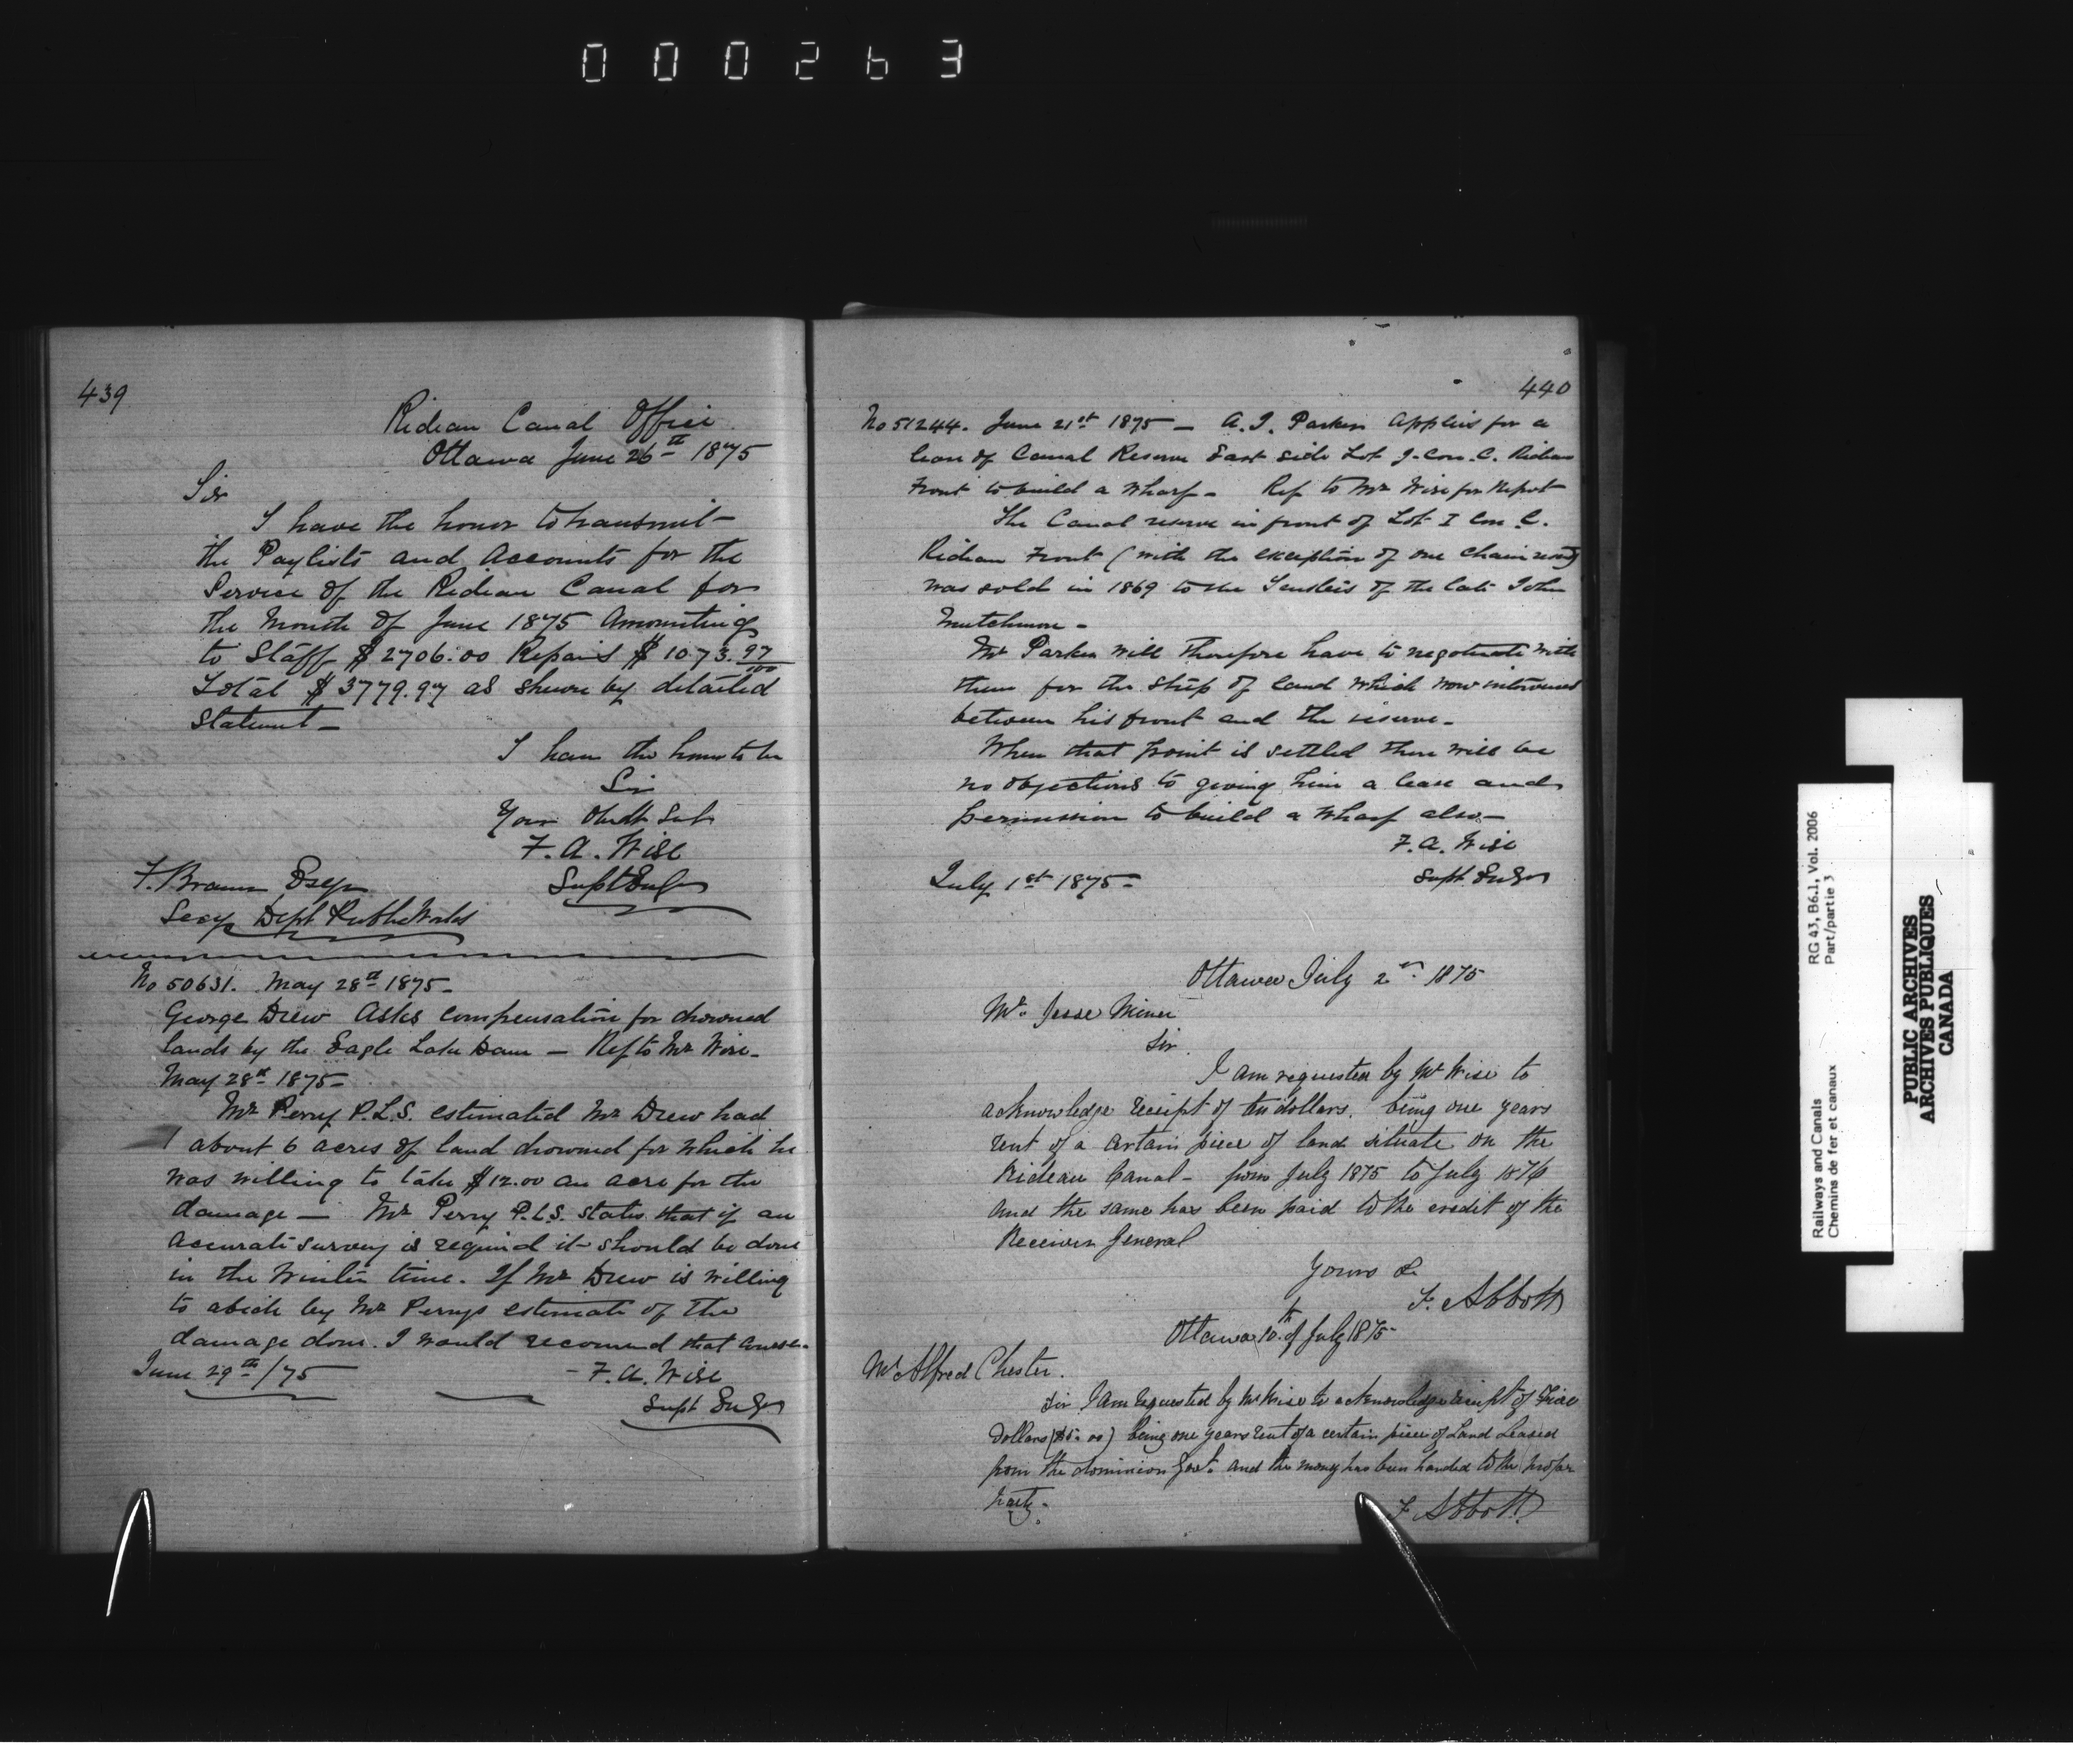 000263
439
Rideau Canal Office
Ottawa June 26th 1875
Sir
I have the honor to transmit
the Paylists and Accounts for the
Service of the Rideau Canal for
the Month of June 1875 Amounting
to Staff $2706.00 Repairs $1073.97/100
Total $3779.97 as shewn by detailed
Statement_
I have the honor to be
Sir
Your Obedt Sert
F. A. Wise
Supt Engr
F. Braun Esqr
Secy Dept Public Works
No 50631. May 28th 1875_
George Drew Asks compensation for drowned
lands by the Eagle Lake Dam _ Ref to Mr Wise_
May 28th 1875_
Mr Perry P.L.S. estimated Mr Drew had
about 6 acres of land drowned for which he
was willing to take $12.00 an acre for the
damage _ Mr Perry P.L.S. states that if an
accurate survey is required it should be done
in the Winter time. If Mr Drew is willing
to abide by Mr Perrys estimate of the
damage done. I would recomend that course.
June 29th/75
F. A. Wise
Supt Engr
440
No 51244. June 21st 1875 _ A. J. Parker Applies for a
lease of Canal Reserve East side Lot I. Con. C. Rideau
Front to build a Wharf _ Ref to Mr Wise for Report
The Canal reserve in front of Lot I Con C.
Rideau Front (with the exception of one chain road)
was sold in 1869 to the Trustees of the late John
Mutchmor_
Mr Parker will therefore have to negotiate with
them for the strip of land which now intervenes
between his front and the reserve_
When that point is settled there will be
no objections to giving him a lease and
permission to build a Wharf also_
F. A. Wise
Supt. Engr
July 1st 1875_
Ottawa July 2nd 1875
Mr. Jesse Miner
Sir
I am requested by Mr Wise to
acknowledge receipt of ten dollars. being one years
rent of a certain piece of land situate on the
Rideau Canal_ from July 1875 to July 1876
and the same has been paid to the credit of the
Receiver General
Yours &c
F. Abbott
Ottawa 10th of July 1875
Mr Alfred Chester.
Sir I am requested by Mr Wise to acknowledge receipt of Five
Dollars ($5.00) being one years rent of a certain piece of Land Leased
from the dominion Govt. and the money has been handed to the proper
party.
F. Abbott
RG 43, B6.1, Vol. 2006
Part/partie 3
Railways and Canals
Chemins de fer et canaux
PUBLIC ARCHIVES
ARCHIVES PUBLIQUES
CANADA